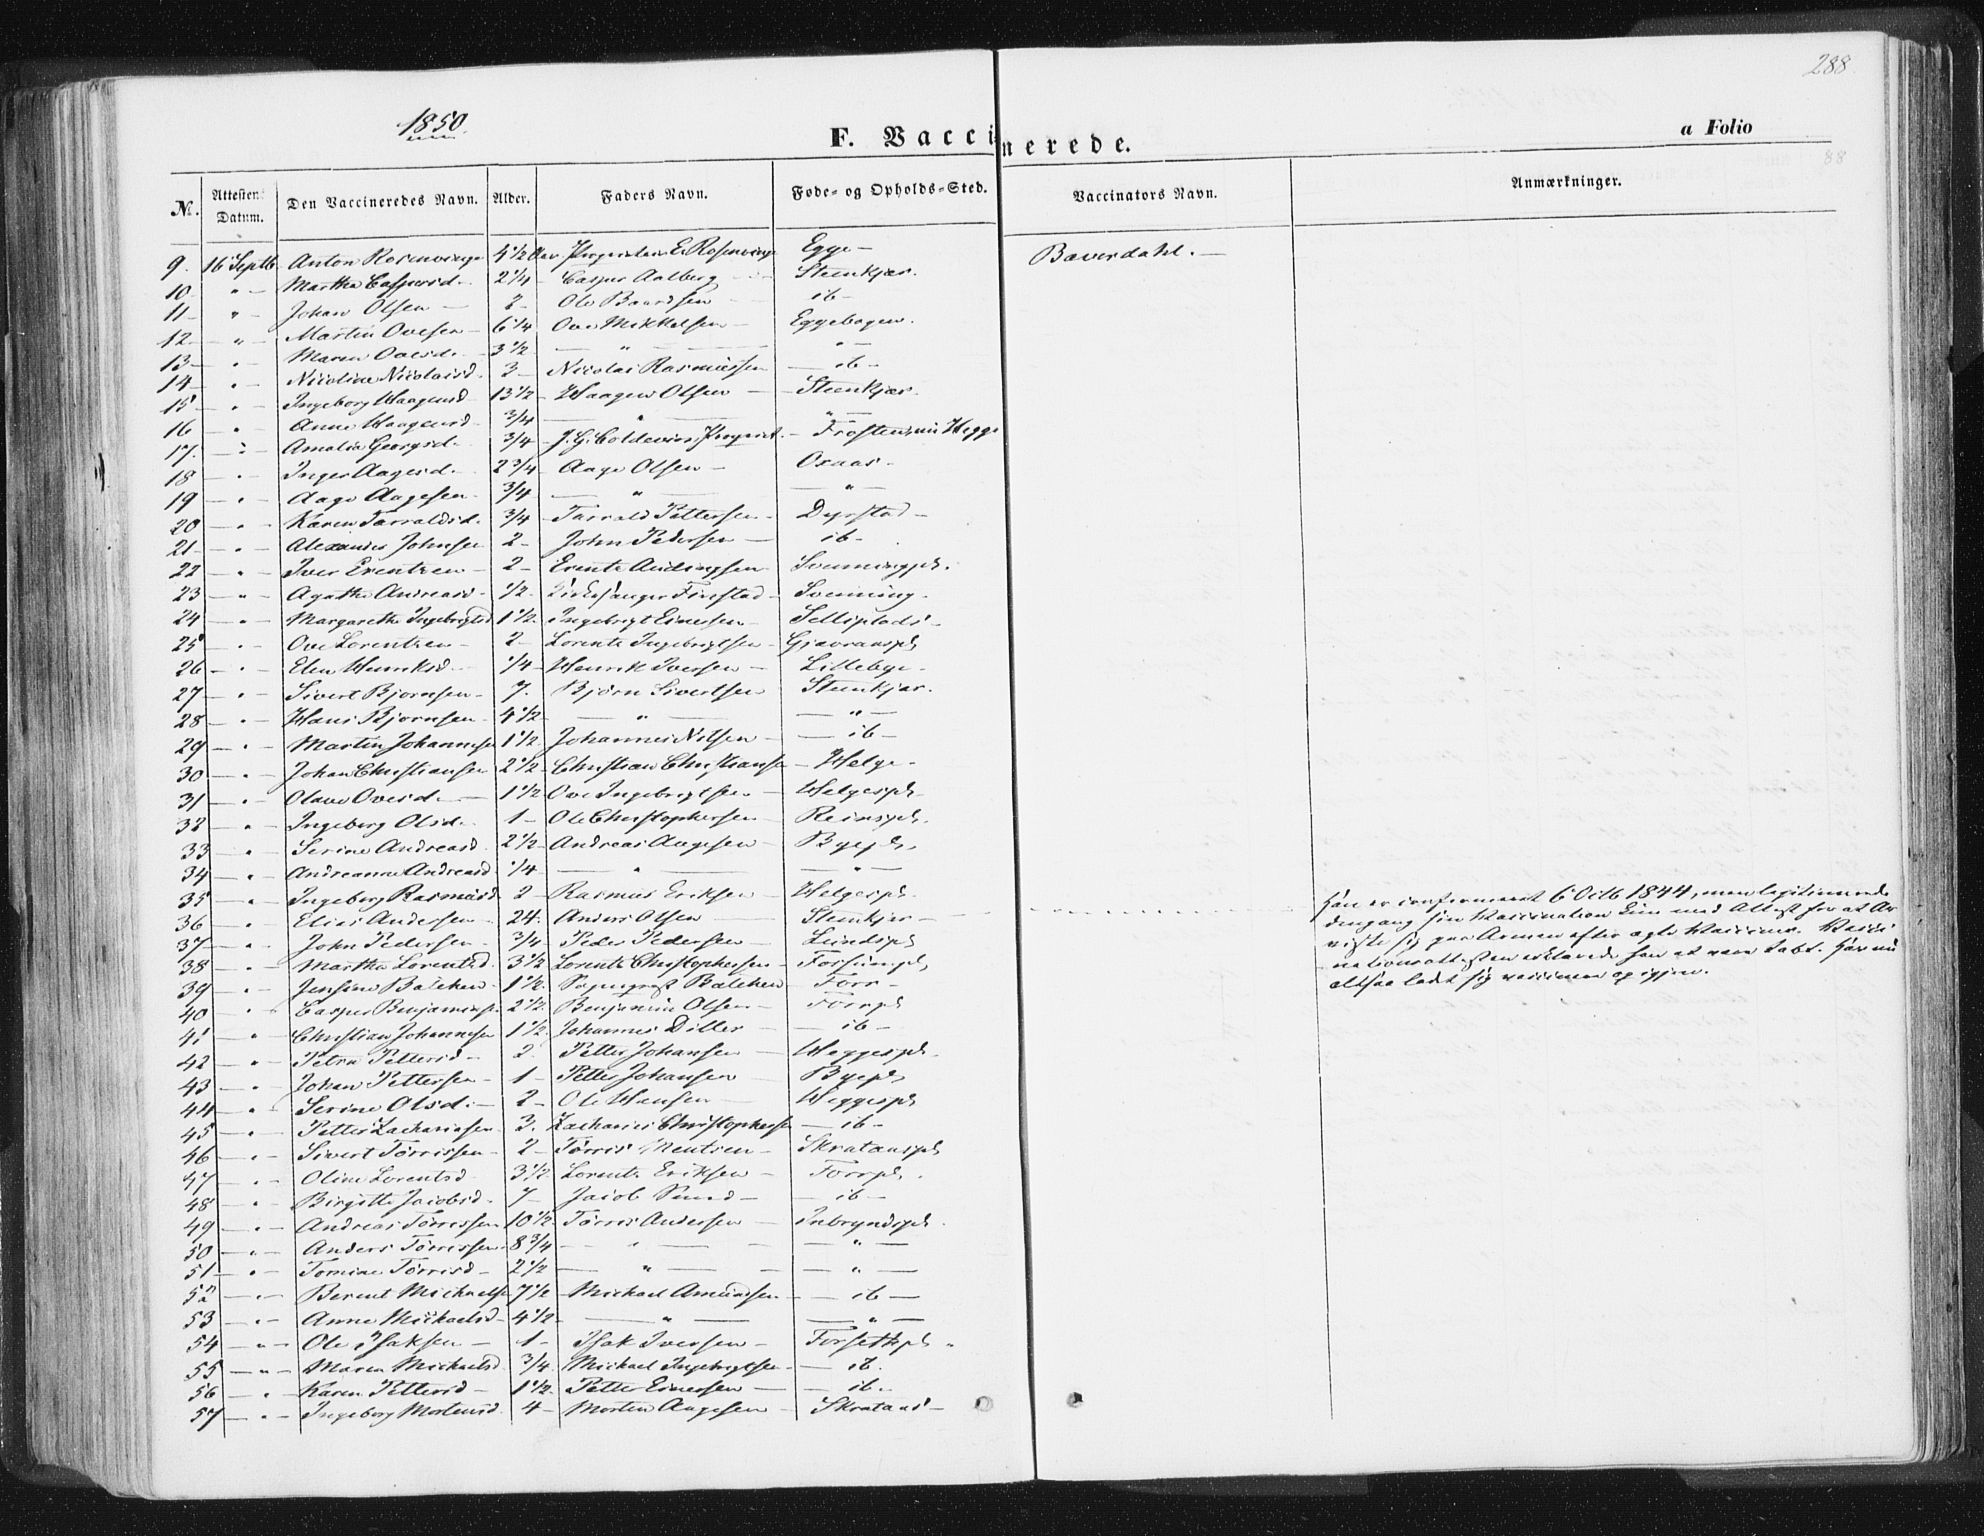 288.
1850.
F. Vaccinerede.
a Folio
88
No. Attestens Datum. Den Vaccineredes Navn. Alder. Faders Navn. Føde- og Opholds-Sted. Vaccinators Navn. Anmærkninger.
9. 16 Septb Anton Rosenvinge 4 1/2 E. Rosenvinge Egge — Baverdahl. —
10 — " — Martha Caspersd. 2 1/4 Casper Aalberg Steenkjær.
11 — " — Johan Olsen — 2 — Ole Baardsen — ib —
12 — " — Martin Ovesen — 6 1/4 Ove Mikkelsen — Eggebogen.
13 — " — Maren Ovesd. — 3 1/2 — " — — " —
14 — " — Nicoline Nicolaisd. 3 — Nicolai Rasmussen — ib —
15 — " — Ingeborg Haagensd 13 1/2 Haagen Olsen — Steenkjær.
16 — " — Anne Haagensd. 3/4 — " — — " —
17. — " — Amalia Georgsd. 3/4 — J. G. Coldevin — Frosten, nu Hegge
18 — " — Inger Aagesd. 2 3/4 Aage Olsen — Oxaas —
19 — " — Aage Aagesen 3/4 — " — — " —
20 — " — Karen Tarraldsd. 3/4 — Tarrald Pettersen — Dyrstad —
21 — " — Alexander Johnsen 2 — John Pedersen — ib —
22 — " — Iver Erentzen — 2 — Erents Andingsen Svenningpl.
23 — " — Agatha Andreasd. 1/2 — Kirkesanger Finstad — Svenning.
24 — " — Margaretha Ingebrigtsd 1 1/2. Ingebrigt Einersen — Selliplads —
25 — " — Ove Lorentzen — 2 — Lorents Ingebrigtsen — Gjævranspl
26 — " — Elen Henriksd. 1/4 — Henrik Iversen — Lillebye —
27 — " — Sivert Bjørnsen — 7. Bjørn Sivertsen Steenkjær.
28 — " — Hans Bjørnsen 4 1/2 — " — — " —
29 — " — Martin Johannesen 1 1/2 Johannes Nilsen — — ib —
30 — " — Johan Christiansen 2 1/2 — Christian Christiansen — Helge —
31 — " — Olava Ovesd. — 1 1/2 Ove Ingebrigtsen — Helgespl.
32 — " — Ingeborg Olsd. 1 — Ole Christophersen — Reinspl.
33 — " — Serine Andreasd 2 1/2 — Andreas Aagesen — Byepl.
34 — " — Andreanna Andreasd. 1/4 — " — — " —
35 — " — Ingeborg Rasmusd. 2 — Rasmus Eriksen — Helgespl.
36 — " — Elias Andersen — 24. Anders Olsen — Steenkjær — Han er confirmeret 6 Octb 1844, men legitimerede
dengang sin Vaccination ikke med Attest for at
viste sig paa Armen efter ægte Vacciner. Vacci
nationsattesten erklærede han at være tabt. Har nu
altsaa ladt sig vaccinere op igjen.
37 — " — John Pedersen — 3/4 — Peder Pedersen — Lundspl
38 — " — Martha Lorentsd. 3 1/2 Lorents Christophersen — Forsumpl
39 — " — Jensine Balchen — 1 1/2 Balchen Forr —
40 — " — Casper Benjaminsen 2 1/2. Benjamin Olsen — Forrpl
41 — " — Christian Johannesen 1 1/2. Johannes Ditter — — ib —
42 — " — Petra Pettersd — 2. Petter Johansen — Heggespl.
43 — " — Johan Pettersen — 1 — Petter Johansen — Byepl.
44 — " — Serine Olsd: — 2 — Ole Hansen — Heggespl
45 — " — Petter Zachariasen 3. Zacharias Christophersen — ib —
46 — " — Sivert Tørrissen — 2 — Tørris Mentzen — Skrataaspl
47 — " — Oline Lorentsd 3 1/2 Lorents Eriksen — Forrpl.
48 — " — Birgitte Jacobsd. 7 — Jacob Sund — — ib —
49 — " — Andreas Tørrissen 10 1/2. Tørris Andersen — Inbryndspl.
50 — " — Anders Tørrissen 8 3/4 — " — — " —
51 — " — Tomine Tørrisd — 2 1/2 — " — — " —
52 — " — Berent Michaelsen 7 1/2 — Michael Amundsen — ib —
53 — " — Anne Michaelsd — 4 1/2 — " — — " —
54 — " — Ole Isaksen — 1 — Isak Iversen — Forsethpl.
55 — " — Maren Michaelsd 3/4. Michael Ingebrigtsen — ib.
56 — " — Karen Pettersd — 1 1/2. Petter Einersen — — ib.
57 — " — Ingeborg Mortensd. 4 — Morten Aagesen — Skrataas —